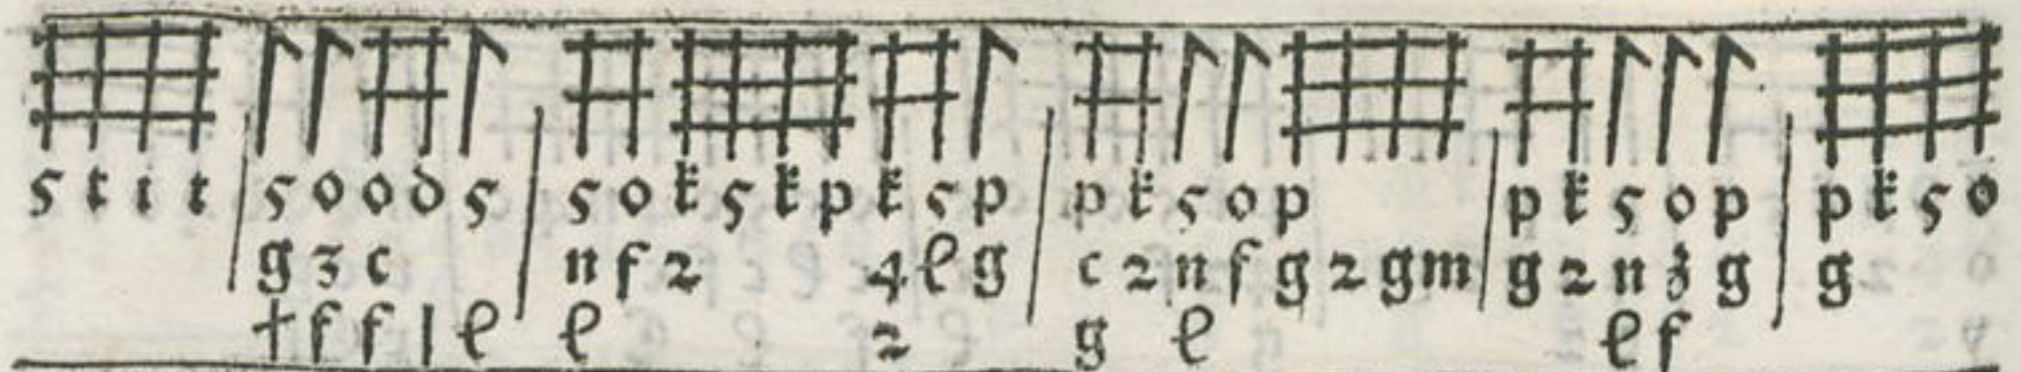 5 t i t | 5 o o d 5 | 5 o k 5 k p k 5 p | p k 5 o p | p k 5 o p | p k 5 o
g 3 c | n f 2 4 e g | c 2 n f g 2 g m | g 2 n 3 g | g
† f f l e | e 2 | g e | e f